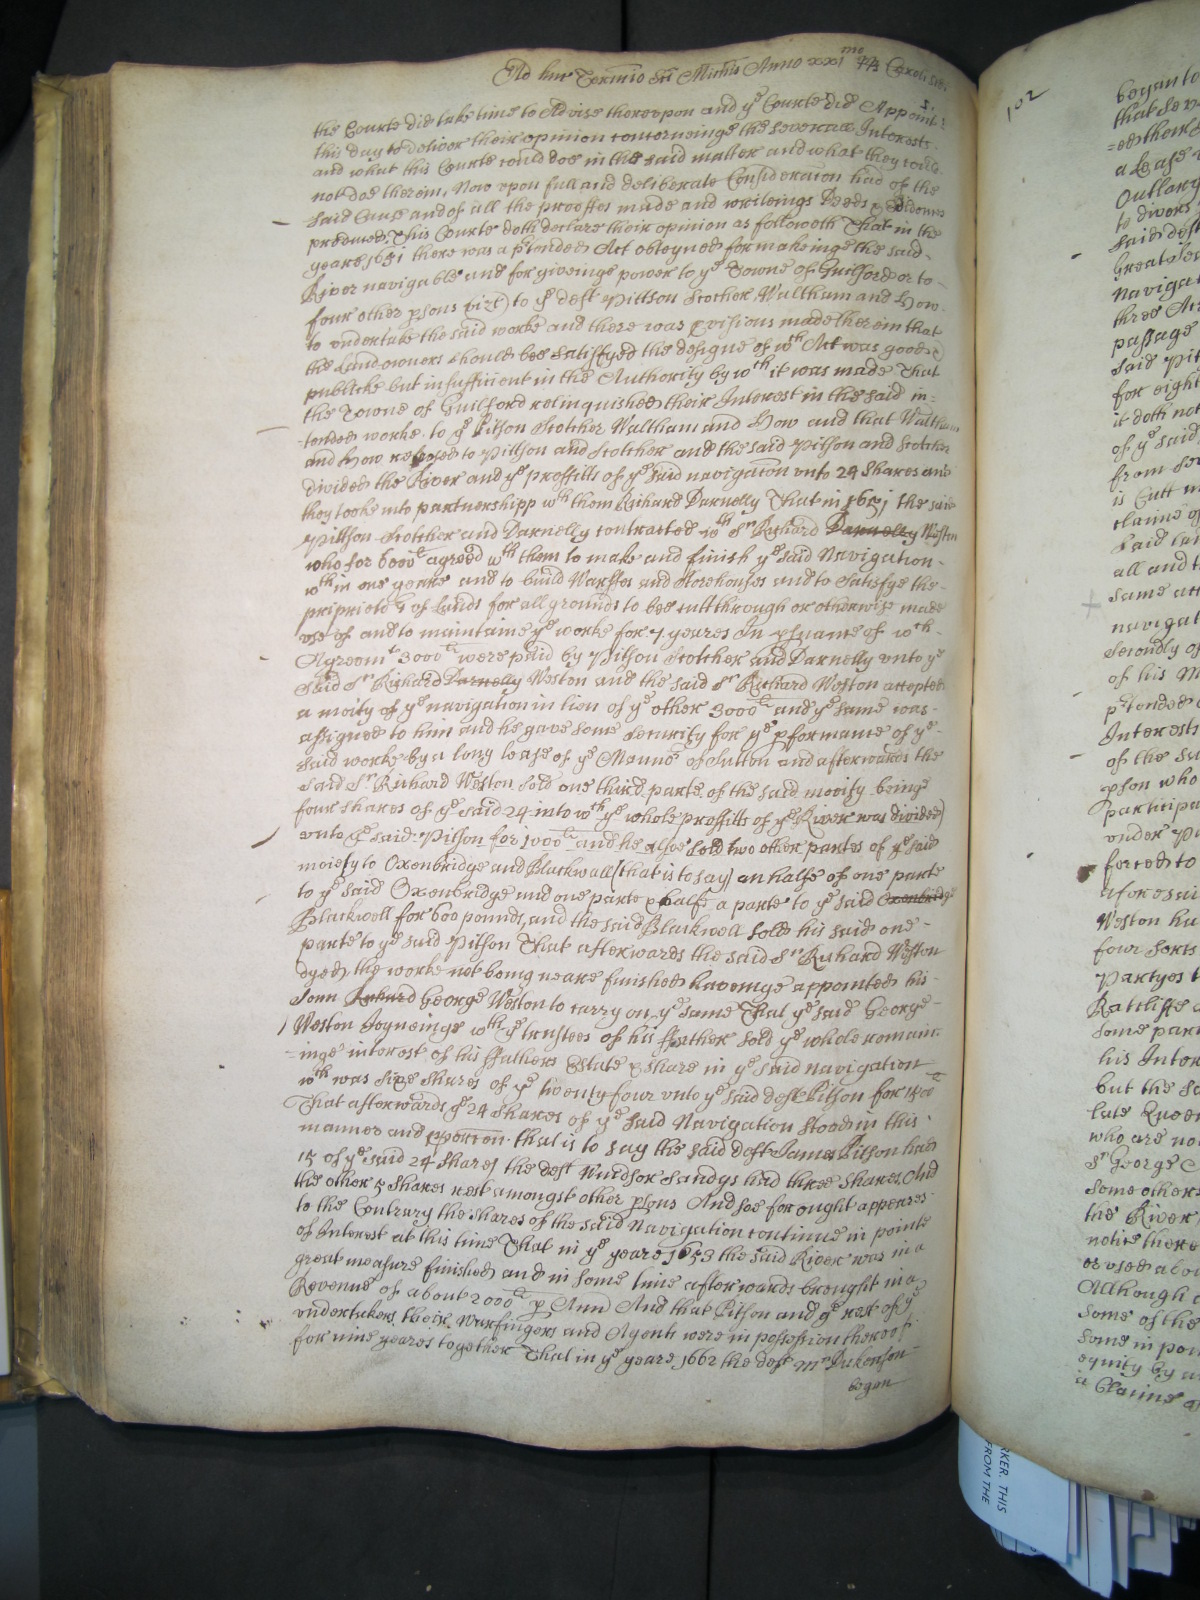 Adhuc Termio Sci Michis Anno xxi mo R Caroli Scdi
the Courte did take time to Advise thereupon and ye Courte did Appoint
this day to deliver their opinion concerneinge the severall Interests
and what this Courte could doe in the said matter and what they could
not doe therein, Now upon full and deliberate Consideracon had of the
said Cause and of all the prooffes made and writeings Deeds & Evidences
produced, This Courte doth declare their opinion as followeth That in the
yeare 1651 there was a ptended Act obteyned for makeinge the said
River navigable and for giveinge power to ye Towne of Guilford or to
four other psons vizt) to ye deft Pittson Scotcher Waltham and How
to undertake the said worke and there was pvisions made therein that
the Landowners should bee satisfyed the designe of wch Act was good &
publicke but insufficient in the Authority by wch it was made That
the Towne of Guilford relinquished their Interest in the said in=
=tended worke to ye Pitson Scotcher Waltham and How and that Waltham
and How released to Pittson and Scotcher and the said Pitson and Scotcher
divided the River and ye proffitts of ye said navigacon unto 24 Shares and
they tooke into partnershipp wth them Richard Darnelly That in 1651 the said
Pittson Scotcher and Darnelly contracted wth Sr Richard Darnelly Weston
who for 6000li agreed wth them to make and finish ye said Navigation
wthin one yeare and to build Warffes and Storehouses and to Satisfye the
pripriet of Lands for all grounds to bee cutt through or otherwise made
use of and to maintaine ye worke for 7 yeares In psuance of wch
Agreemt 3000li were paid by Pitson Scotcher and Darnelly unto ye
said Sr Richard Darnelly Weston and the said Sr Richard Weston accepted
a moity of ye navigation in lieu of ye other 3000li and ye same was
assigned to him and he gave some Security for ye pformance of ye
said worke by a long lease of ye Mannor of Sutton and afterwards the
said Sr Richard Weston sold one third parte of the said mooity being
four shares of ye said 24 into wch ye whole proffitts of ye River was divided)
unto ye said Pitson for 1000li and he alsoe sold two other partes of ye said
moiety to Oxenbridge and Blackwall (that is to say) an halfe of one parte
to ye said Oxenbridge and one parte & halfe a parte to ye said Oxenbridge
Blackwell for 600 pounds, and the said Blackwell sold his said one
parte to ye said Pitson That afterwards the said Sr Richard Weston
dyed the worke not being neare finished haveinge appointed his
Sonn Richard George Weston to carry on ye same That ye said George
Weston Joyneinge wth ye trustees of his ffather sold ye whole remain
=inge interest of his ffathers Estate & share in ye said navigation
wch was sixe shares of ye twenty four unto ye said deft Pitson for 1500li
That afterwards ye 24 Shares of ye said Navigation stood in this
manner and pporcon that is to say the said deft James Pitson had
15 of ye said 24 shares the deft Windsor Sandys had three shares, And
the other 5 shares rest amongst other psons And soe for ought appeares
to the Contrary the shares of the said Navigation continue in pointe
of Interest at this time That in ye yeare 1653 the said River was in a
great measure finished and in some time afterwards brought in a
Revenue of about 2000li p Ann And that Pitson and ye rest of ye
undertakers their Warfingers and Agents were in possession thereof
for nine yeares together That in ye yeare 1662 the deft Mr Dickenson
began
102
began to
that seve
a Lease
Outlary
to divers
said deft
Great
Navigat
three
passage
said Pit
for eight
it doth not
of ye said
from
is Cutt
claime of
said lan
all and
same
navigat
secondly of
of his M
ptended
Interests
of the
pson who
participa
under Pi
forced to
aforesaid
Weston ha
four sorts
Partyes
Ratcliffe
some part
his Inter
but the sa
late Queen
who are no
Sr George
some others
the River
notice there
or used abo
Although
some of the
some in po
equity by
a Claime
RKER. THIS
FROM THE